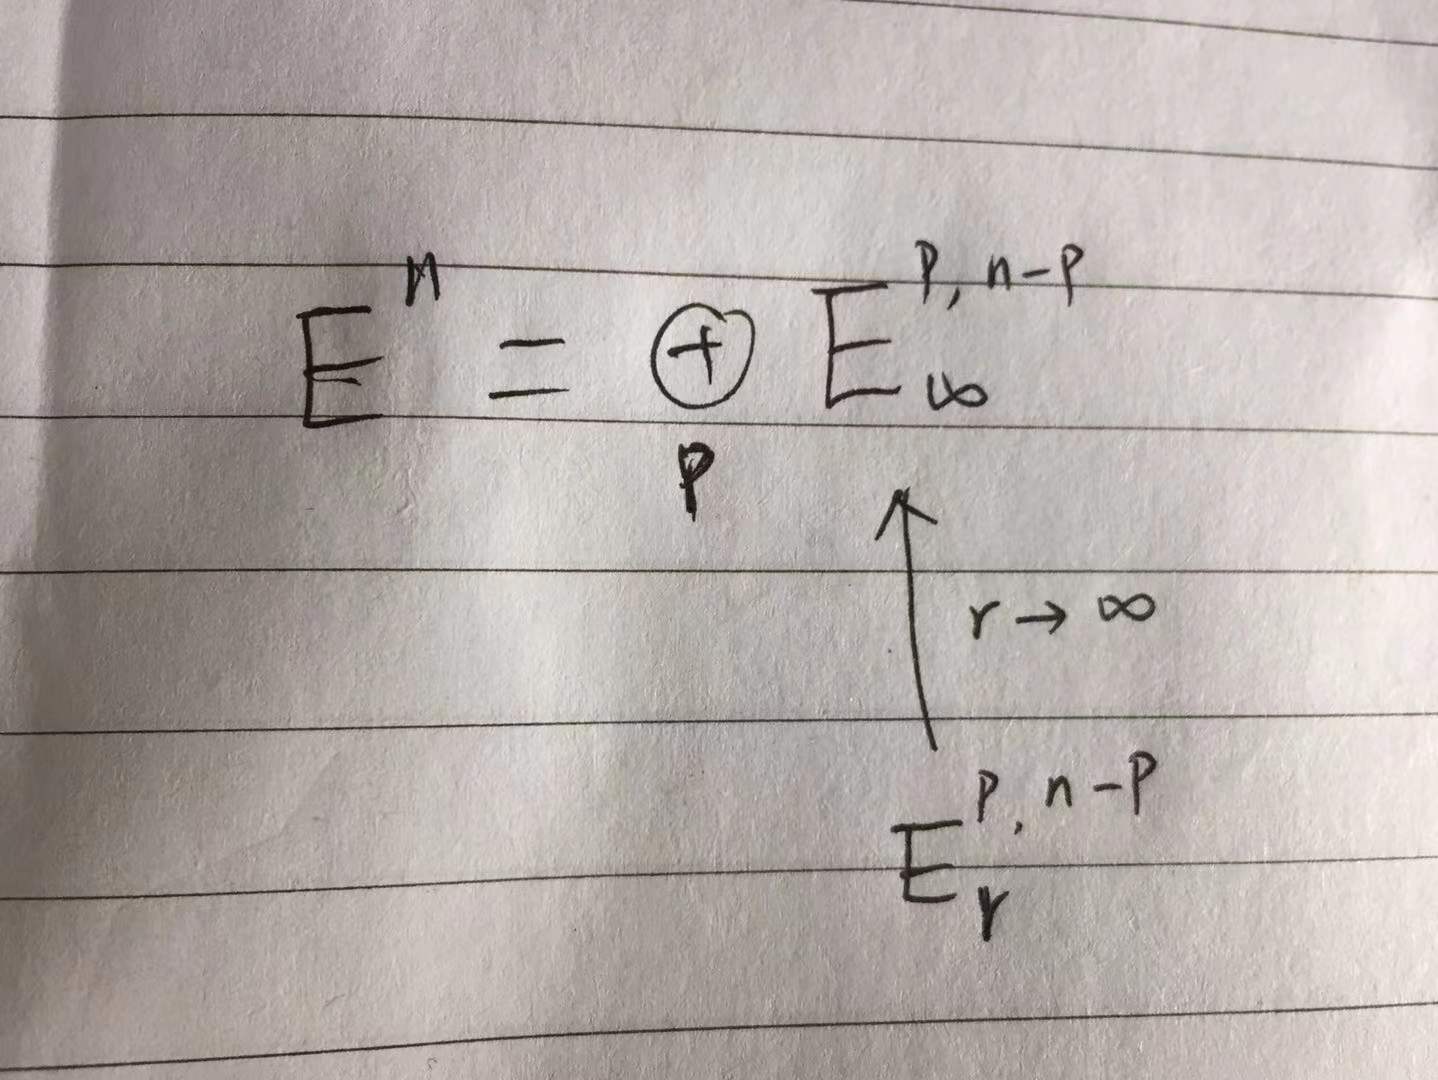 E^n = ⊕_p E_∞^{p, n-p}
↑ r → ∞
E_r^{p, n-p}